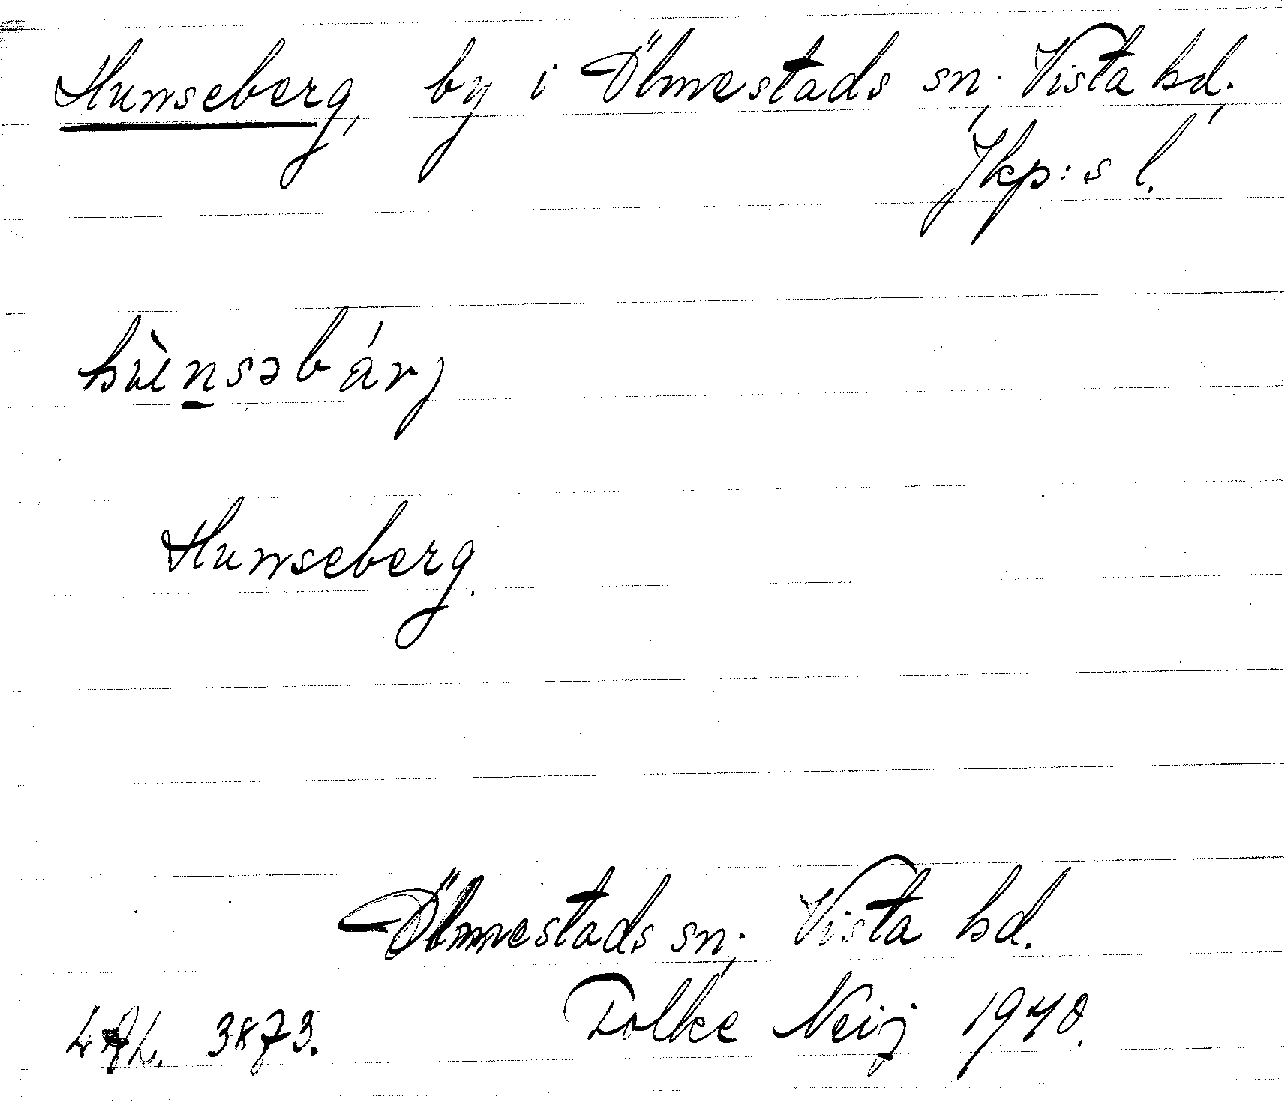 Hunseberg, by i Ölmestads sn, Vista hd,
Jkp:s l.
hùnsəbárj
Hunseberg.
Ölmestads sn, Vista hd.
Folke Neij 1940.
3873.